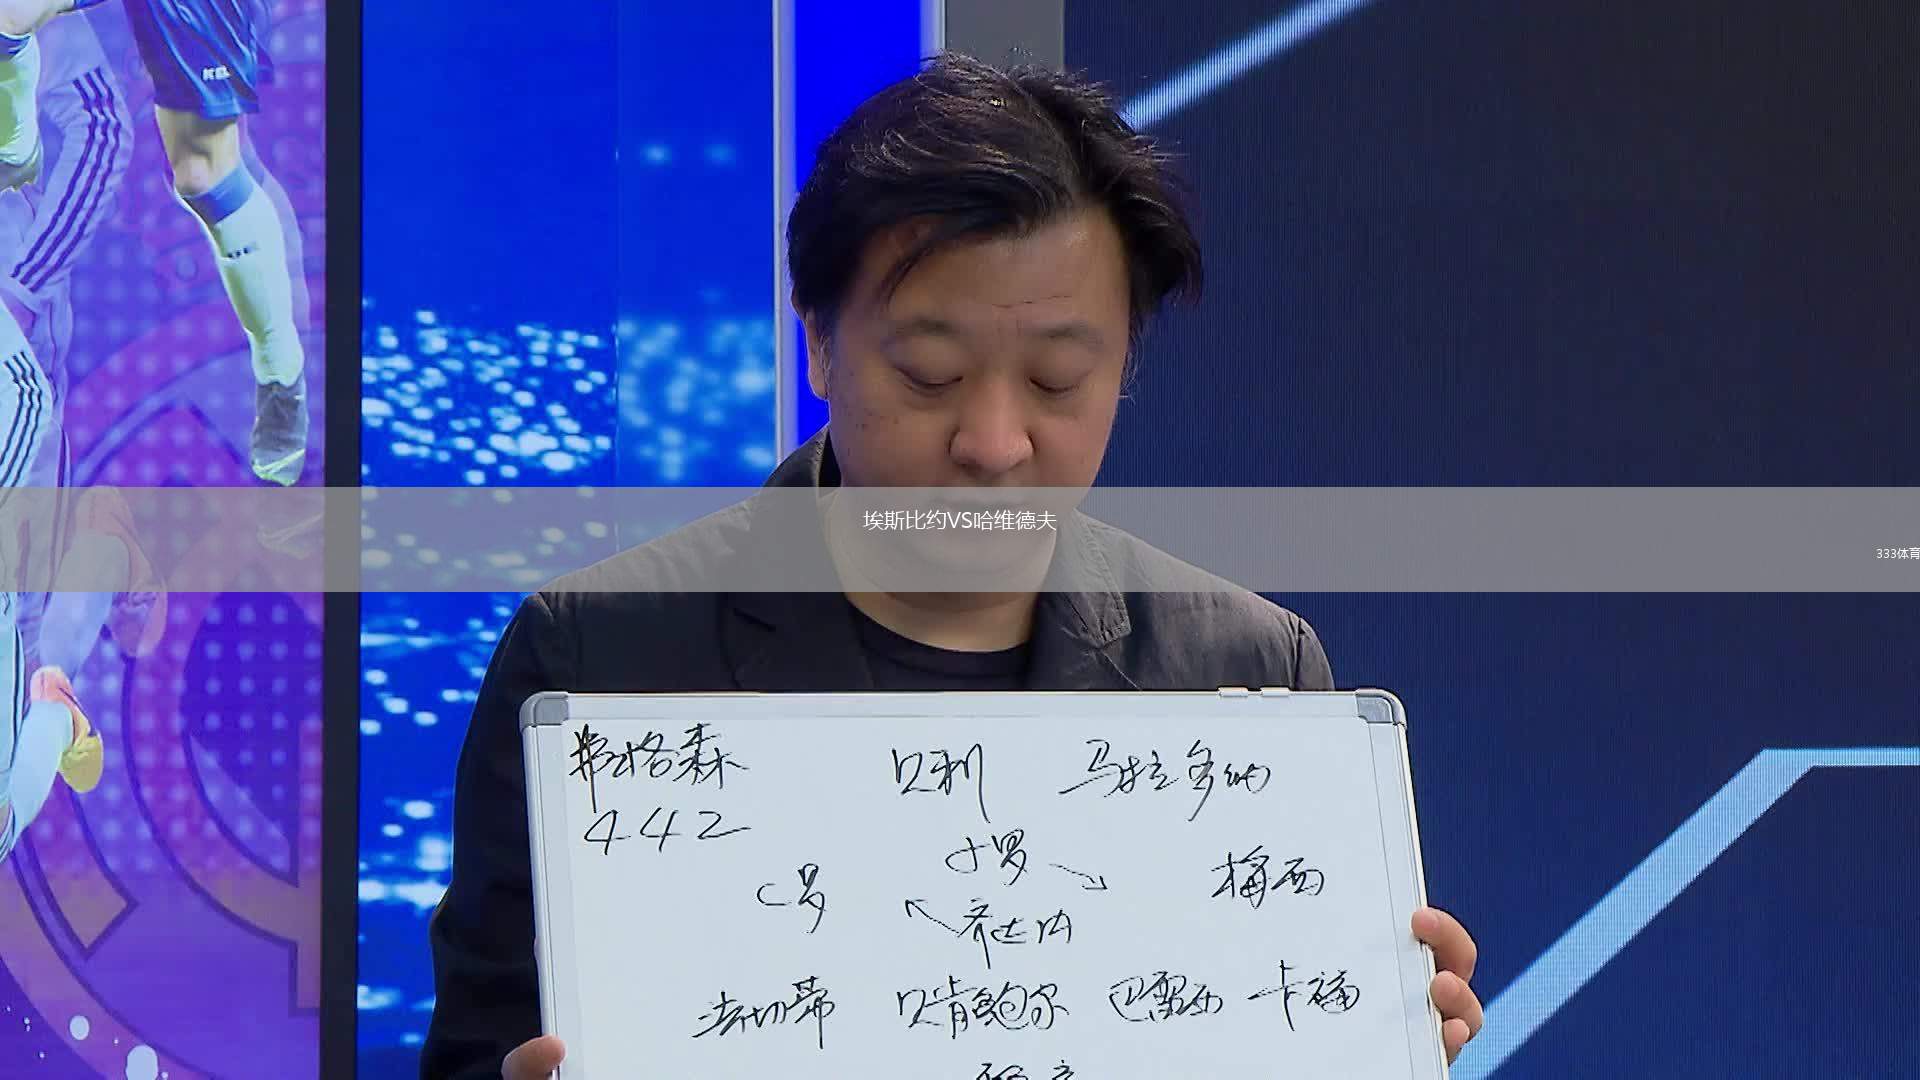 埃斯比约VS哈维德夫
333体育
弗格森 贝利 马拉多纳
442
小罗
C罗 梅西
齐达内
法切蒂 贝肯鲍尔 巴雷西 卡福